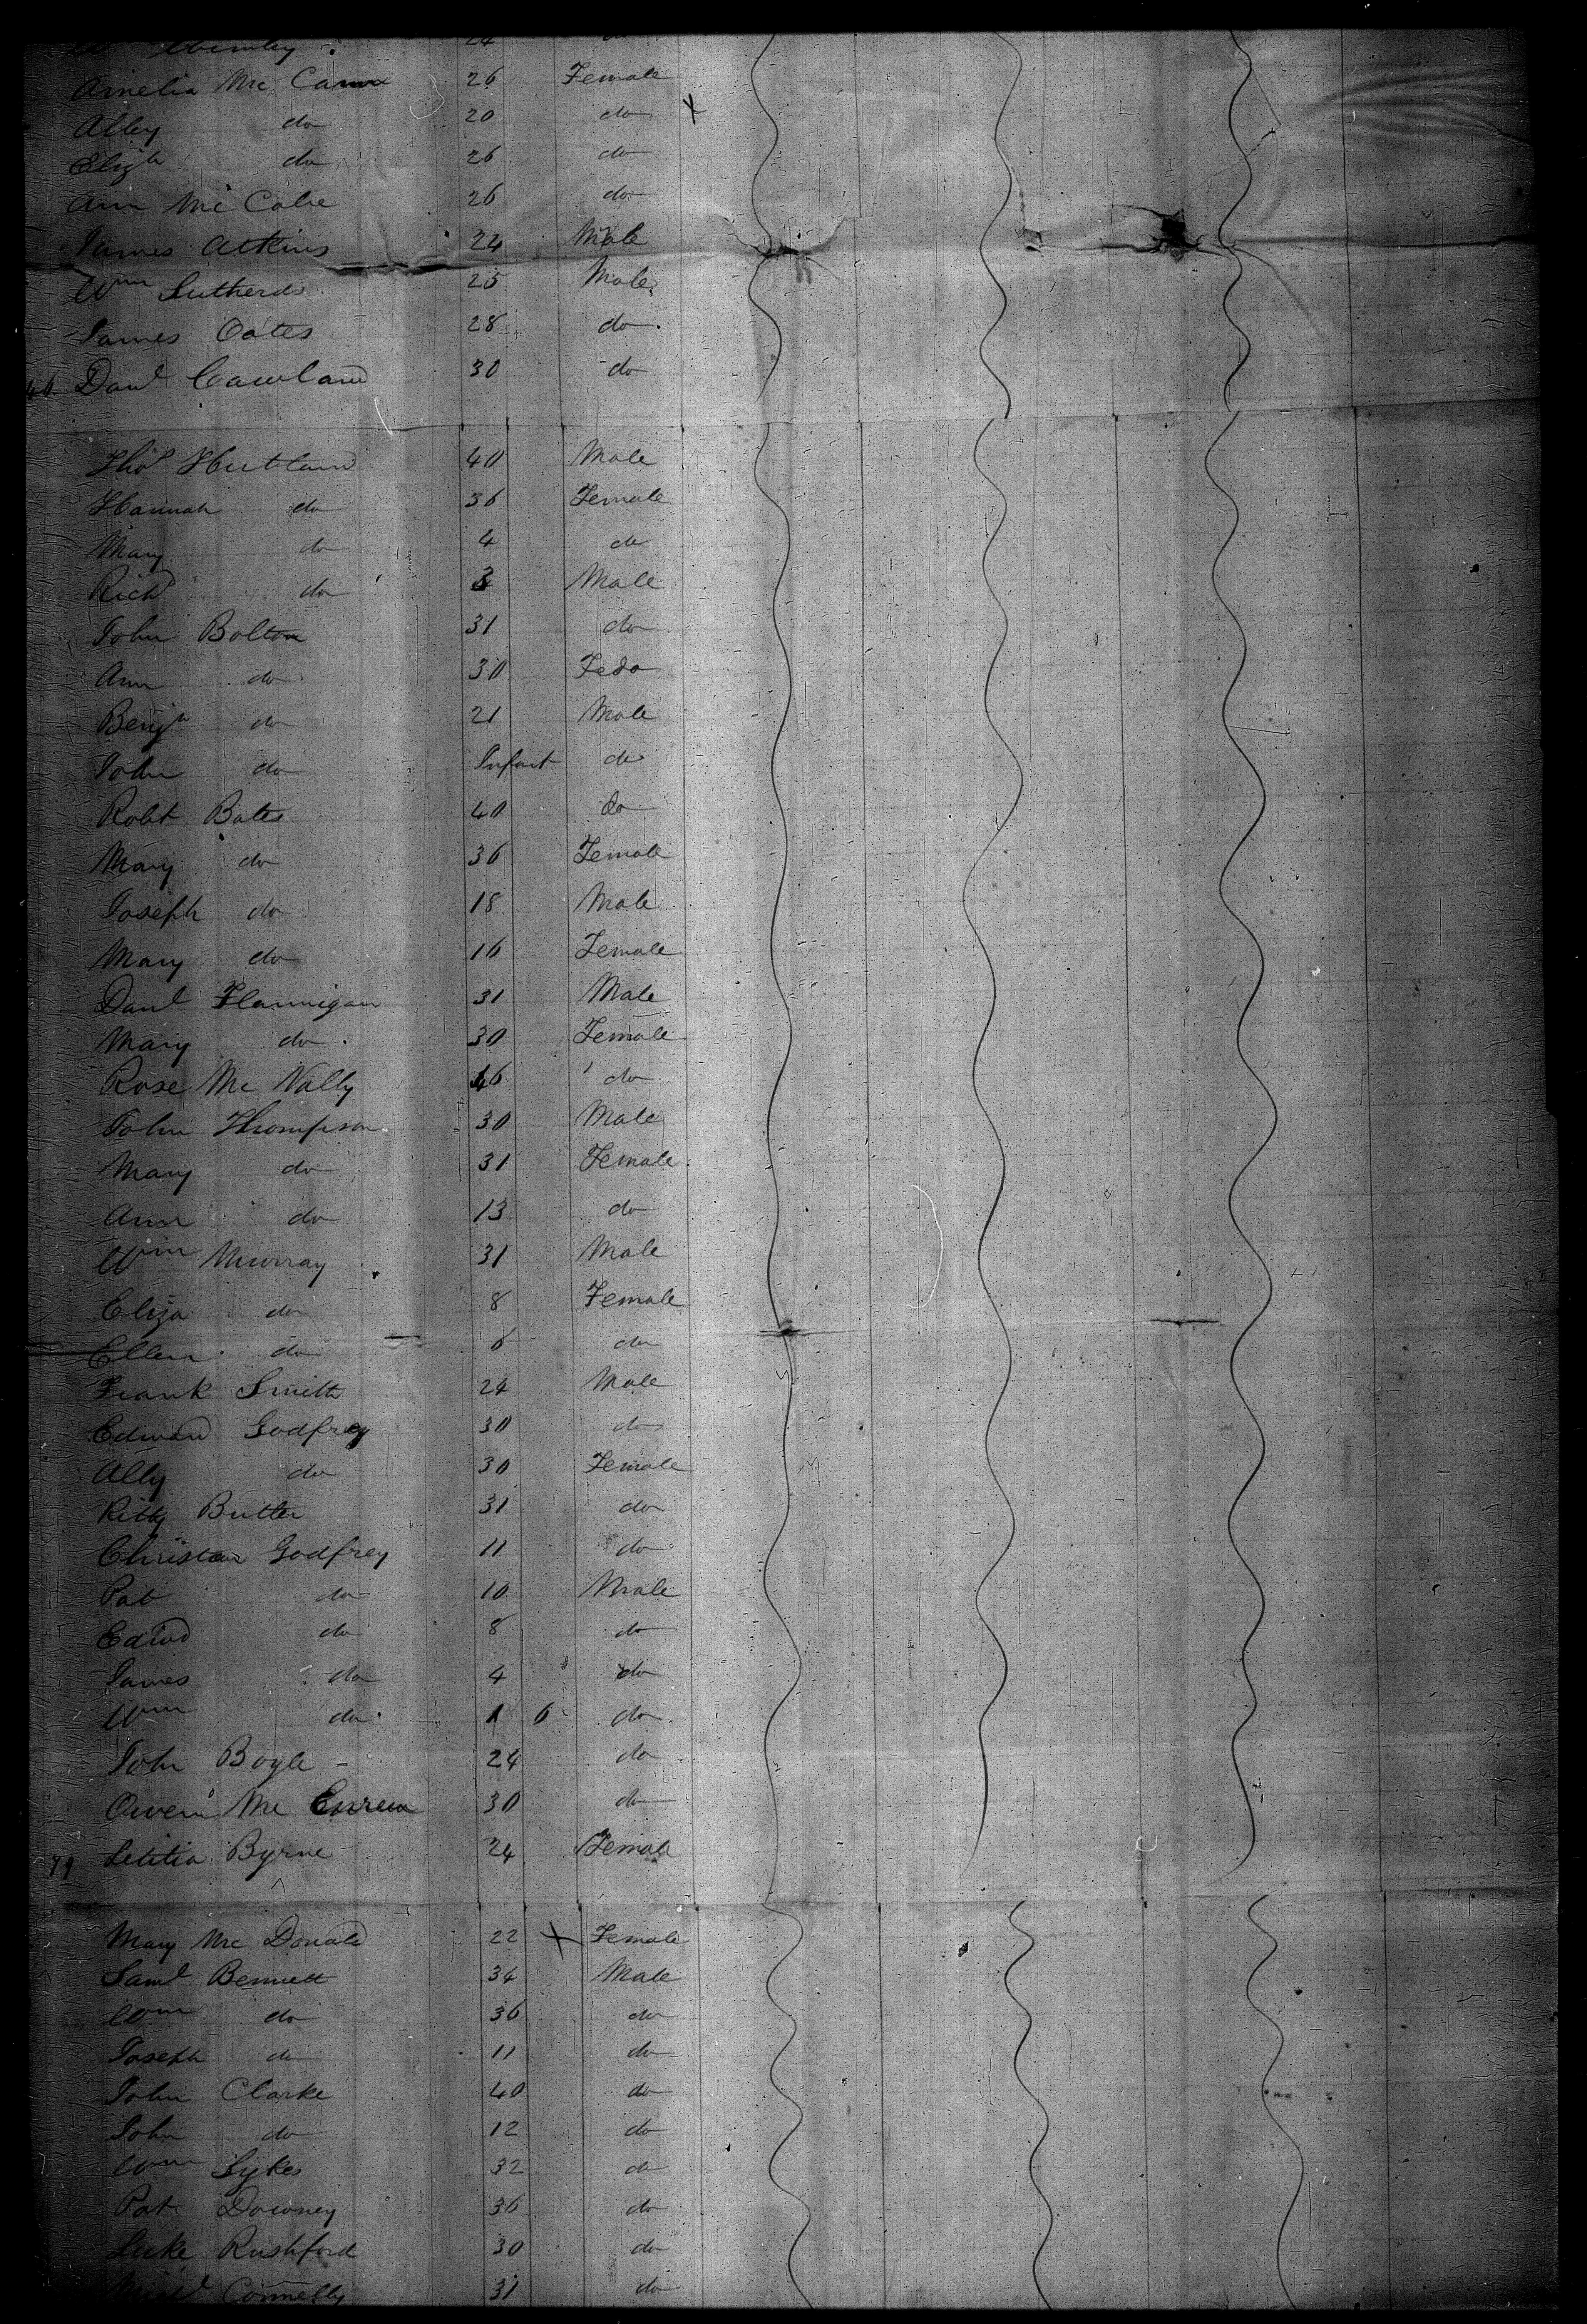 24 do
Amelia Mc Canna 26 Female
Alley do 20 do X
Elizh do 26 do
Ann Mc Cabe 26 do
James Atkins 24 Male
Wm 25 Male
James Oates 28 do
Danl 30 do
Thos 40 Male
Hannah do 36 Female
Mary do 4 do
Richd do 3 Male
John Bolton 31 do
Ann do 30 Fedo
Benjn do 21 Male
John do Infant do
Robt Bates 40 do
Mary do 36 Female
Joseph do 18 Male
Mary do 16 Female
Danl Flannigan 31 Male
Mary do 30 Female
Rose Mc Nally 16 do
John Thompson 30 Male
Mary do 31 Female
Ann do 13 do
Wm Murray 31 Male
Eliza do 8 Female
Ellen do 6 do
Frank Smith 24 Male
Edward Godfrey 30 do
Ally do 30 Female
Kitty Butler 31 do
Christian Godfrey 11 do
Pat do 10 Male
Edwd do 8 do
James do 4 do
Wm do 1 6 do
John Boyle 24 do
Owen Mc 30 do
79 Letitia Byrne 24 Female
Mary Mc Donald 22 X Female
Saml Bennett 34 Male
Wm do 36 do
Joseph do 11 do
John Clarke 40 do
John do 12 do
Wm Sykes 32 do
Pat Downey 36 do
Luke Rushford 30 do
Connelly 31 do